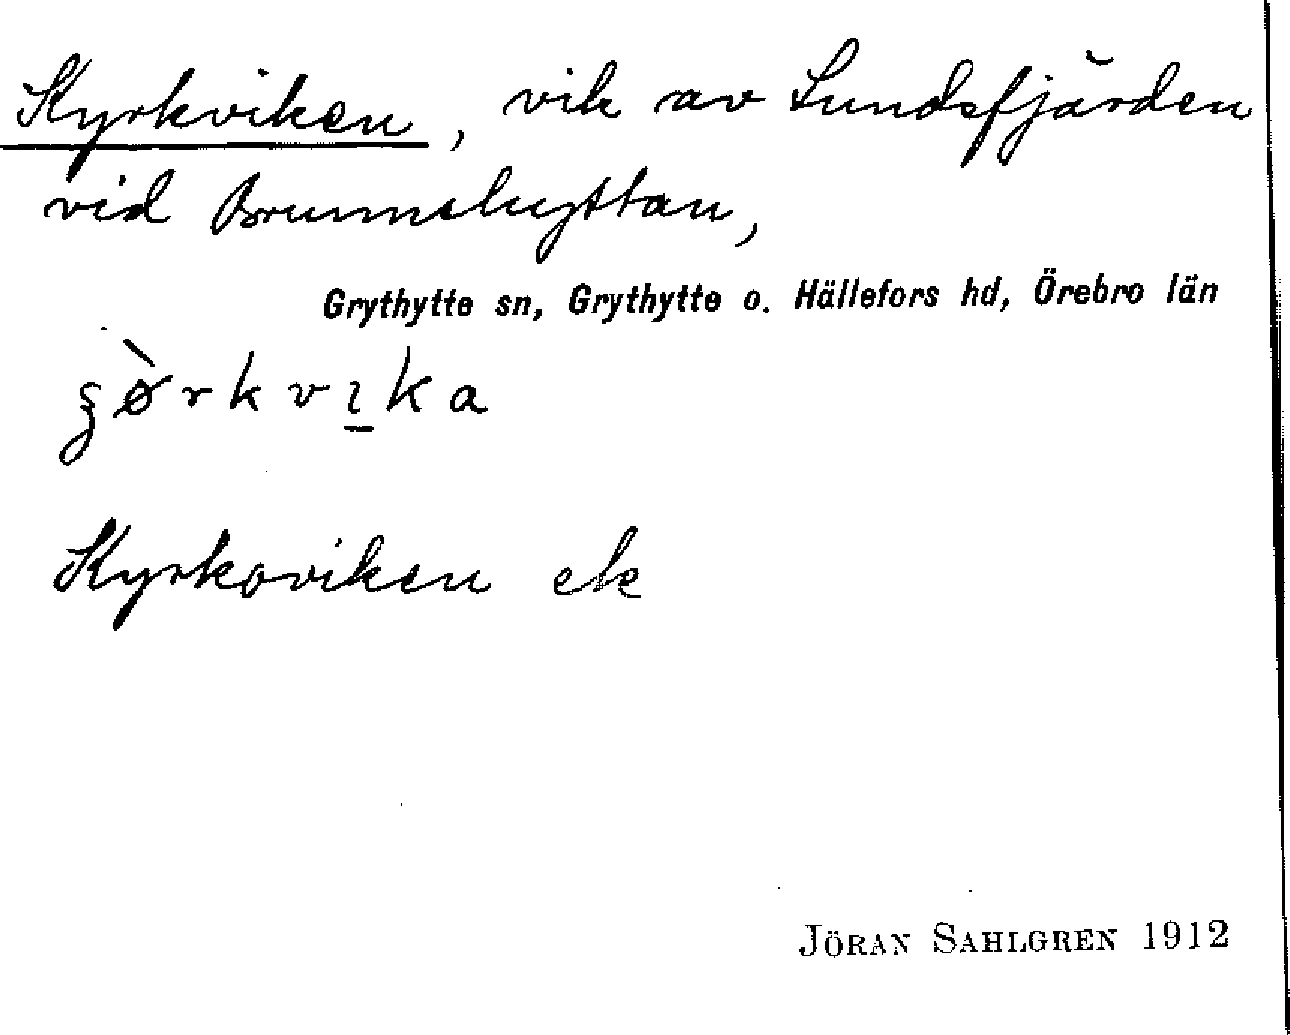 Kyrkviken, vik av Lundsfjärden
vid Brunnshyttan,
Grythytte sn, Grythytte o. Hällefors hd, Örebro län
Kyrkoviken ek
JÖRAN SAHLGREN 1912